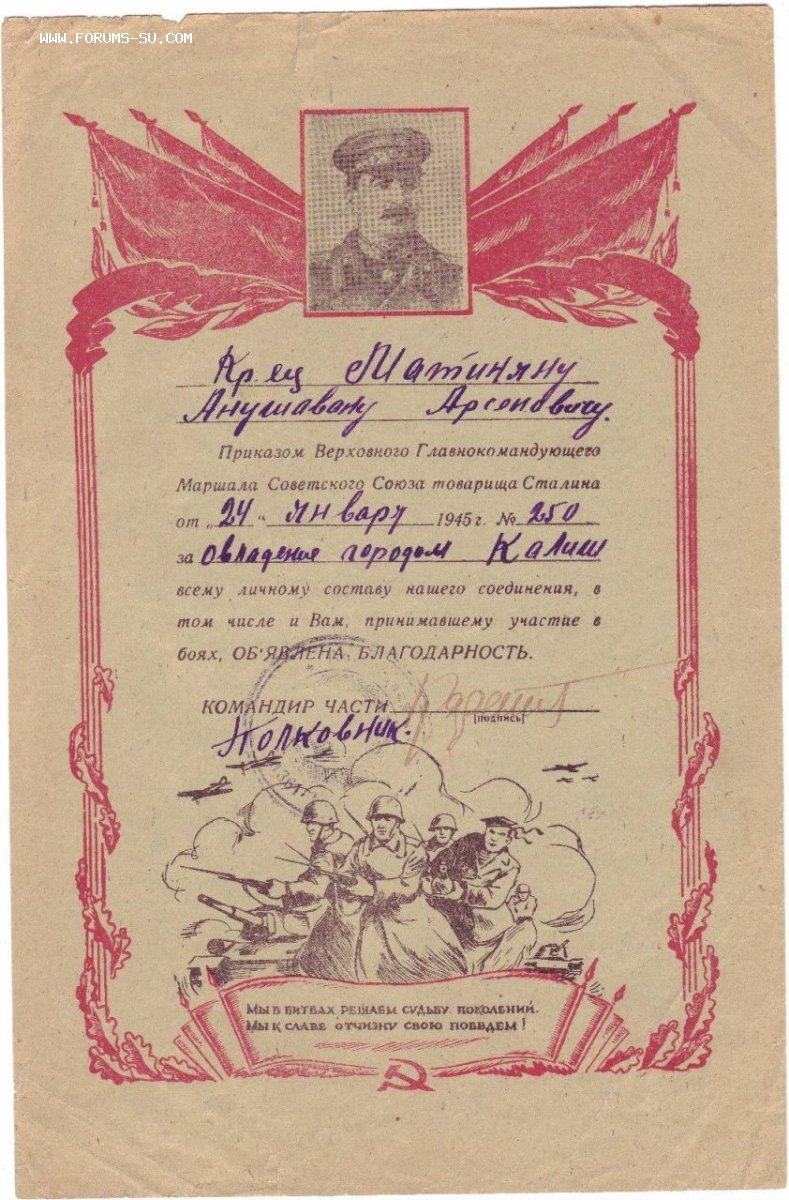 WWW.FORUMS-SU.COM
Кр-ец Матиняну
Анушавану Арсеновичу.
Приказом Верховного Главнокомандующего
Маршала Советского Союза товарища Сталина
от „24“ январу 1945г. № 250
за Овладение городом Калиш
всему личному составу нашего соединения, в
том числе и Вам, принимавшему участие в
боях, ОБ'ЯВЛЕНА БЛАГОДАРНОСТЬ.
КОМАНДИР ЧАСТИ
[подпись]
Полковник.
МЫ В БИТВАХ РЕШАЕМ СУДЬБУ ПОКОЛЕНИЙ.
МЫ К СЛАВЕ ОТЧИЗНУ СВОЮ ПОВЕДЕМ!